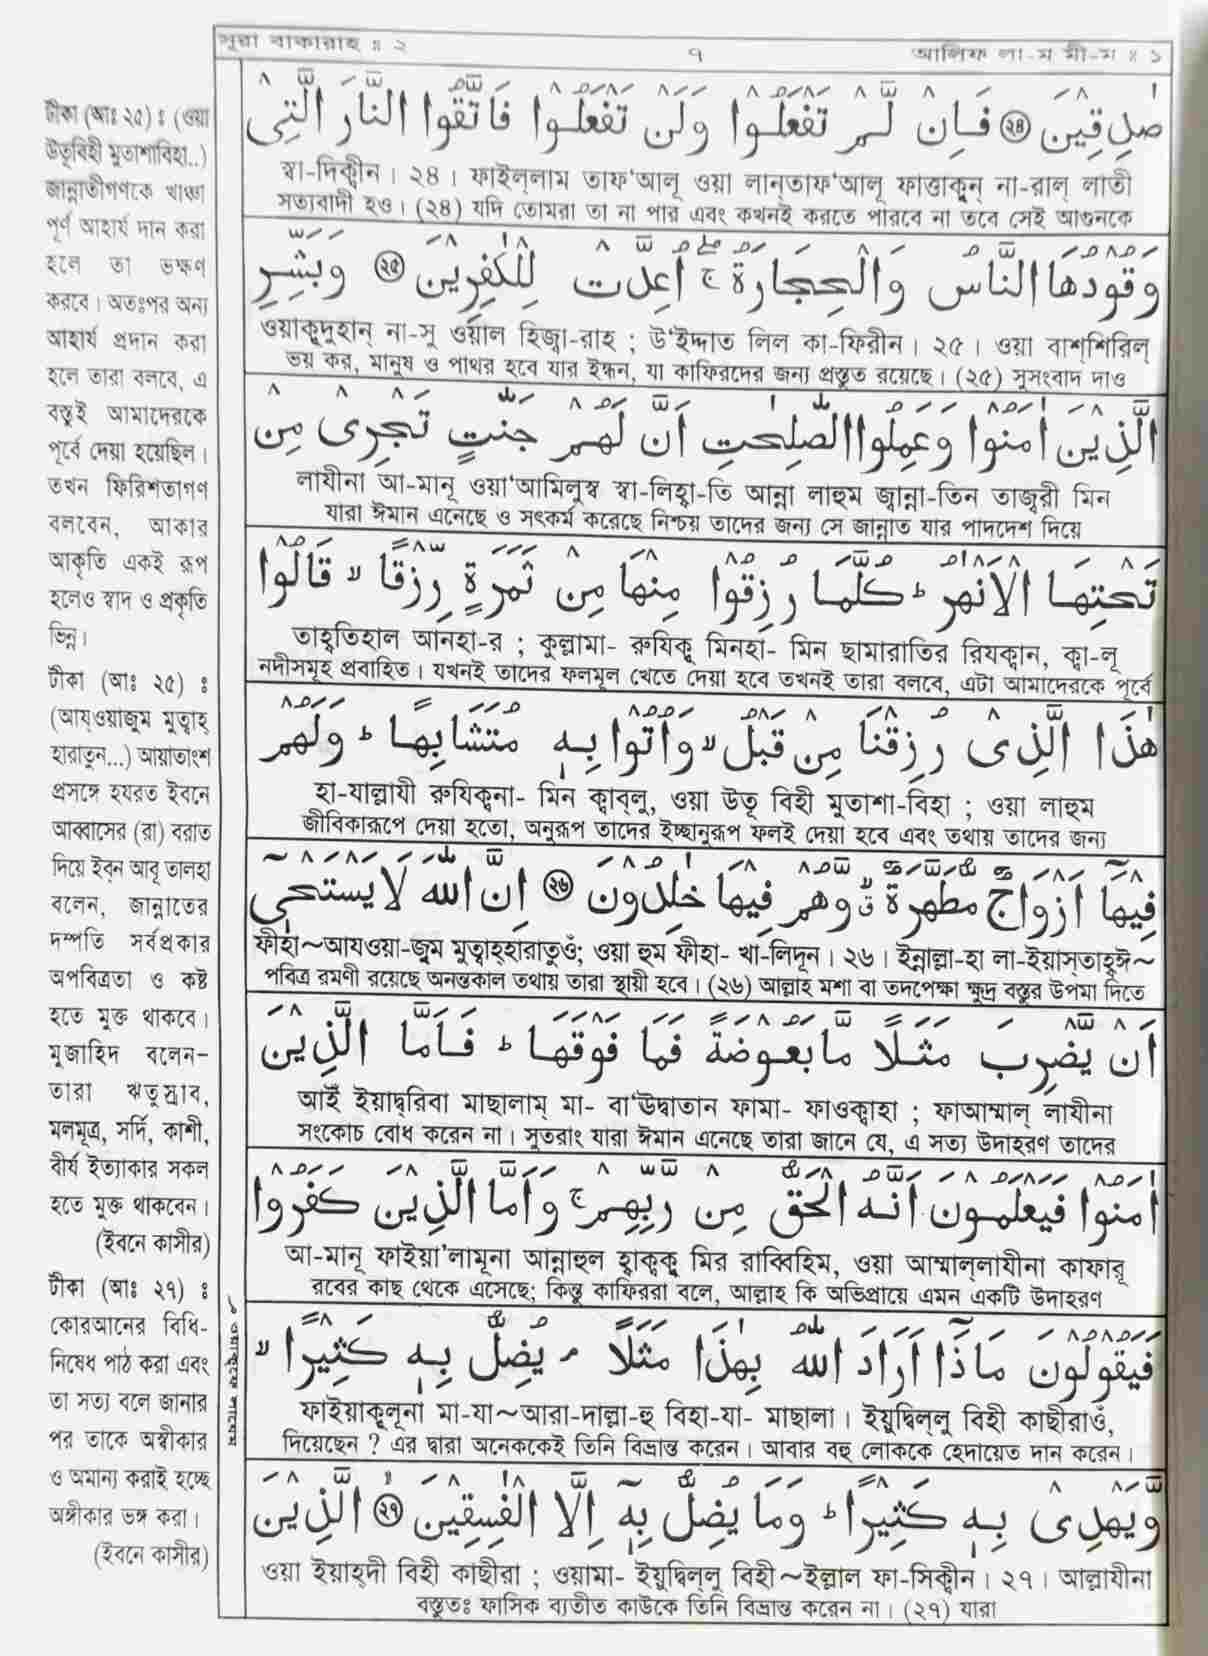 সূরা বাকারাহ ঃ ২
৭
আলিফ লা-ম মী-ম ঃ ১
صٰدِقِيْنَ ﴿২৪﴾ فَاِنْ لَّمْ تَفْعَلُوْا وَلَنْ تَفْعَلُوْا فَاتَّقُوا النَّارَ الَّتِيْ
স্বা-দিক্বীন। ২৪। ফাইল্লাম তাফ'আলূ ওয়া লান্‌তাফ'আলূ ফাত্তাকুন্ না-রাল্ লাতী
সত্যবাদী হও। (২৪) যদি তোমরা তা না পার এবং কখনই করতে পারবে না তবে সেই আগুনকে
وَقُوْدُهَا النَّاسُ وَالْحِجَارَةُ ۚ اُعِدَّتْ لِلْكٰفِرِيْنَ ﴿২৫﴾ وَبَشِّرِ
ওয়াকুদুহান্ না-সু ওয়াল হিজ্বা-রাহ ; উ'ইদ্দাত লিল কা-ফিরীন। ২৫। ওয়া বাশ্‌শিরিল্
ভয় কর, মানুষ ও পাথর হবে যার ইন্ধন, যা কাফিরদের জন্য প্রস্তুত রয়েছে। (২৫) সুসংবাদ দাও
الَّذِيْنَ اٰمَنُوْا وَعَمِلُوا الصّٰلِحٰتِ اَنَّ لَهُمْ جَنّٰتٍ تَجْرِيْ مِنْ
লাযীনা আ-মানূ ওয়া'আমিলুস্ব স্বা-লিহ্বা-তি আন্না লাহুম জ্বান্না-তিন তাজ্বরী মিন
যারা ঈমান এনেছে ও সৎকর্ম করেছে নিশ্চয় তাদের জন্য সে জান্নাত যার পাদদেশ দিয়ে
تَحْتِهَا الْاَنْهٰرُ ؕ كُلَّمَا رُزِقُوْا مِنْهَا مِنْ ثَمَرَةٍ رِّزْقًا ۙ قَالُوْا
তাহ্বতিহাল আনহা-র ; কুল্লামা- রুযিকূ মিনহা- মিন ছামারাতির রিযক্বান, ক্বা-লূ
নদীসমূহ প্রবাহিত। যখনই তাদের ফলমূল খেতে দেয়া হবে তখনই তারা বলবে, এটা আমাদেরকে পূর্বে
هٰذَا الَّذِيْ رُزِقْنَا مِنْ قَبْلُ ۙ وَاُتُوْا بِهٖ مُتَشَابِهًا ؕ وَلَهُمْ
হা-যাল্লাযী রুযিক্বনা- মিন ক্বাব্‌লু, ওয়া উতূ বিহী মুতাশা-বিহা ; ওয়া লাহুম
জীবিকারূপে দেয়া হতো, অনুরূপ তাদের ইচ্ছানুরূপ ফলই দেয়া হবে এবং তথায় তাদের জন্য
فِيْهَآ اَزْوَاجٌ مُّطَهَّرَةٌ ۙ وَّهُمْ فِيْهَا خٰلِدُوْنَ ﴿২৬﴾ اِنَّ اللّٰهَ لَا يَسْتَحْيٖٓ
ফীহা~আযওয়া-জুম মুত্বাহ্‌হারাতুওঁ; ওয়া হুম ফীহা- খা-লিদূন। ২৬। ইন্নাল্লা-হা লা-ইয়াস্‌তাহ্বঈ~
পবিত্র রমণী রয়েছে অনন্তকাল তথায় তারা স্থায়ী হবে। (২৬) আল্লাহ মশা বা তদপেক্ষা ক্ষুদ্র বস্তুর উপমা দিতে
اَنْ يَّضْرِبَ مَثَلًا مَّا بَعُوْضَةً فَمَا فَوْقَهَا ؕ فَاَمَّا الَّذِيْنَ
আইঁ ইয়াদ্বরিবা মাছালাম্ মা- বা'ঊদ্বাতান ফামা- ফাওক্বাহা ; ফাআম্মাল্ লাযীনা
সংকোচ বোধ করেন না। সুতরাং যারা ঈমান এনেছে তারা জানে যে, এ সত্য উদাহরণ তাদের
اٰمَنُوْا فَيَعْلَمُوْنَ اَنَّهُ الْحَقُّ مِنْ رَّبِّهِمْ ۚ وَاَمَّا الَّذِيْنَ كَفَرُوْا
আ-মানূ ফাইয়া'লামূনা আন্নাহুল হ্বাক্বকু মির রাব্বিহিম, ওয়া আম্মাল্‌লাযীনা কাফারূ
রবের কাছ থেকে এসেছে; কিন্তু কাফিররা বলে, আল্লাহ কি অভিপ্রায়ে এমন একটি উদাহরণ
فَيَقُوْلُوْنَ مَاذَآ اَرَادَ اللّٰهُ بِهٰذَا مَثَلًا ۘ يُضِلُّ بِهٖ كَثِيْرًا ۙ
ফাইয়াকুলূনা মা-যা~আরা-দাল্লা-হু বিহা-যা- মাছালা। ইয়ুদ্বিল্‌লু বিহী কাছীরাওঁ,
দিয়েছেন ? এর দ্বারা অনেককেই তিনি বিভ্রান্ত করেন। আবার বহু লোককে হেদায়েত দান করেন।
وَّيَهْدِيْ بِهٖ كَثِيْرًا ؕ وَمَا يُضِلُّ بِهٖٓ اِلَّا الْفٰسِقِيْنَ ﴿২৭﴾ الَّذِيْنَ
ওয়া ইয়াহ্‌দী বিহী কাছীরা ; ওয়ামা- ইয়ুদ্বিল্‌লু বিহী~ইল্লাল ফা-সিক্বীন। ২৭। আল্লাযীনা
বস্তুতঃ ফাসিক ব্যতীত কাউকে তিনি বিভ্রান্ত করেন না। (২৭) যারা
টীকা (আঃ ২৫) ঃ (ওয়া
উতূবিহী মুতাশাবিহা..)
জান্নাতীগণকে খাঞ্চা
পূর্ণ আহার্য দান করা
হলে তা ভক্ষণ
করবে। অতঃপর অন্য
আহার্য প্রদান করা
হলে তারা বলবে, এ
বস্তুই আমাদেরকে
পূর্বে দেয়া হয়েছিল।
তখন ফিরিশতাগণ
বলবেন, আকার
আকৃতি একই রূপ
হলেও স্বাদ ও প্রকৃতি
ভিন্ন।
টীকা (আঃ ২৫) ঃ
(আয্ওয়াজুম মুত্বাহ্
হারাতুন...) আয়াতাংশ
প্রসঙ্গে হযরত ইবনে
আব্বাসের (রা) বরাত
দিয়ে ইব্‌ন আবূ তালহা
বলেন, জান্নাতের
দম্পতি সর্বপ্রকার
অপবিত্রতা ও কষ্ট
হতে মুক্ত থাকবে।
মুজাহিদ বলেন-
তারা ঋতুস্রাব,
মলমূত্র, সর্দি, কাশী,
বীর্য ইত্যাকার সকল
হতে মুক্ত থাকবেন।
(ইবনে কাসীর)
টীকা (আঃ ২৭) ঃ
কোরআনের বিধি-
নিষেধ পাঠ করা এবং
তা সত্য বলে জানার
পর তাকে অস্বীকার
ও অমান্য করাই হচ্ছে
অঙ্গীকার ভঙ্গ করা।
(ইবনে কাসীর)